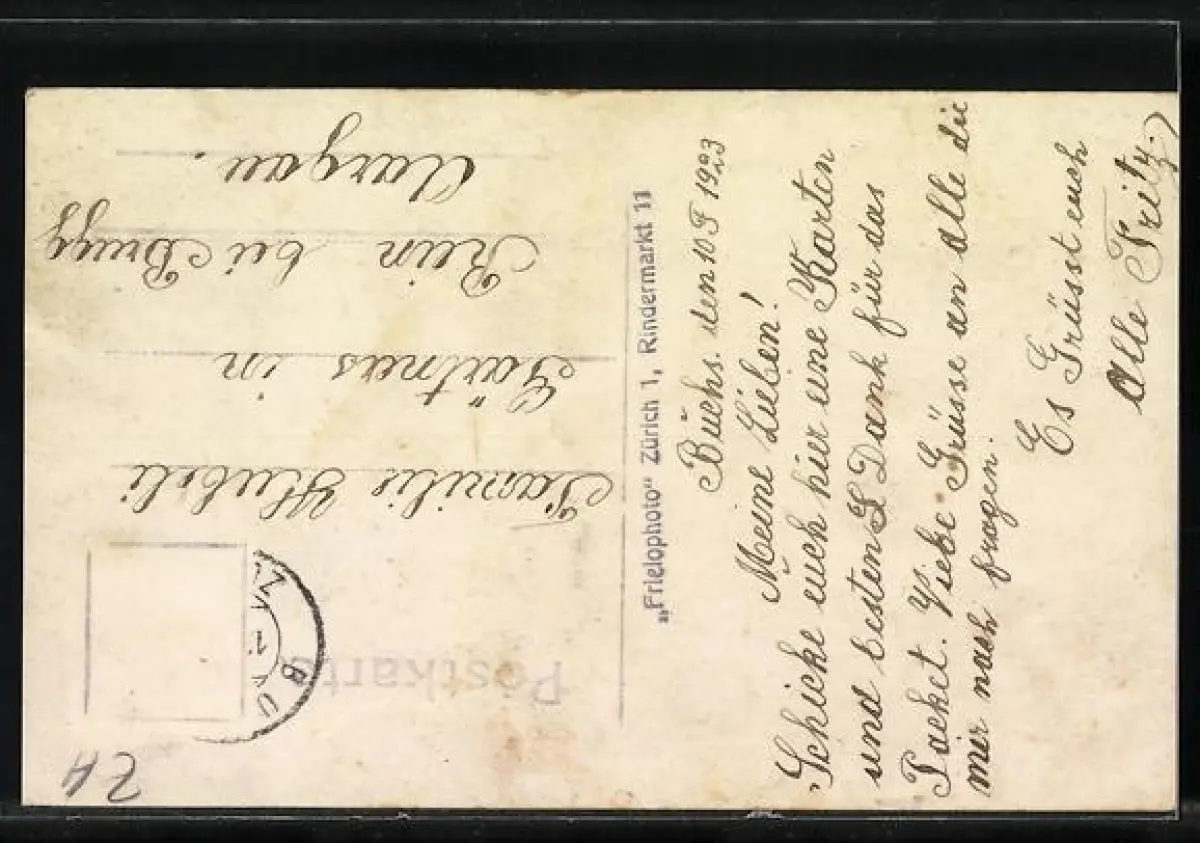 Buchs. den 10 F 1923
Meine Lieben!
Schicke euch hier eine Karten
und besten Dank für das
Packet. Viebe Grüsse an alle die
mir nach fragen.
Es Grüsst euch
Alle Fritz.
„Frielophoto“ Zürich 1, Rindermarkt 11
Postkarte
Familie
in
Rein bei Brugg
Aargau.